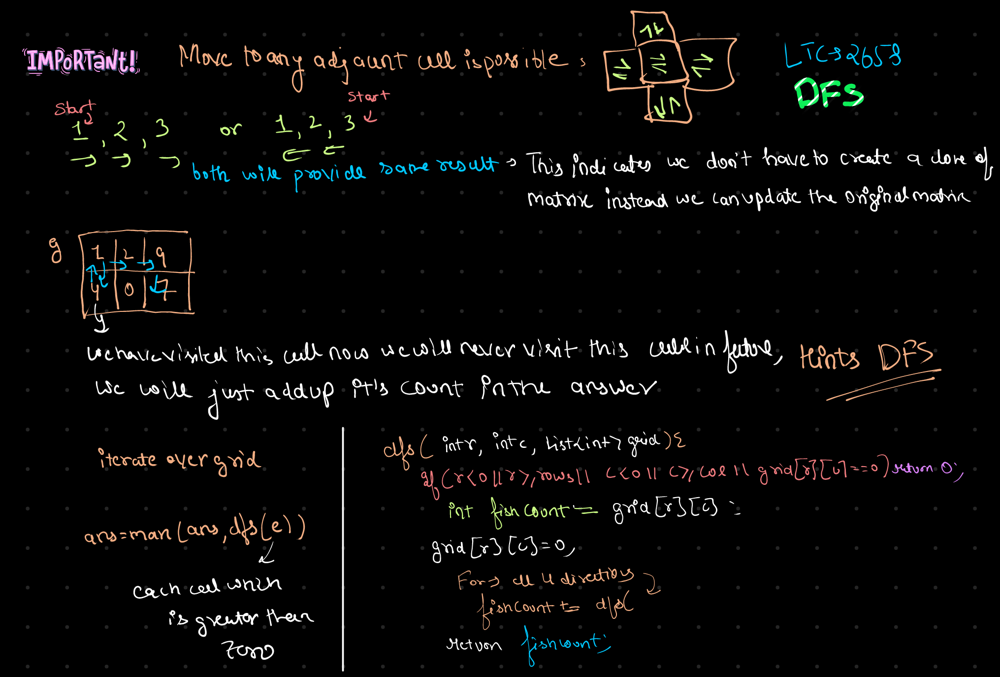 IMPORTANT!
Move to any adjacent cell is possible :
LTC → 2658
DFS
Start
1, 2, 3 or 1, 2, 3
Start
both will provide same result → This indicates we don't have to create a clone of
matrix instead we can update the original matrix
g
1 2 9
4 0 7
we have visited this cell now we will never visit this cell in future,
we will just add up it's count in the answer
Hints DFS
iterate over grid
ans=max(ans,dfs(e))
each cell which
is greater than
zero
dfs( int r, int c, List<int> grid){
if(r<0 || r>=rows || c<0 || c>=col || grid[r][c]==0) return 0;
int fishcount = grid[r][c];
grid[r][c]=0,
For → all 4 directions
fishcount += dfs(
return fishcount;